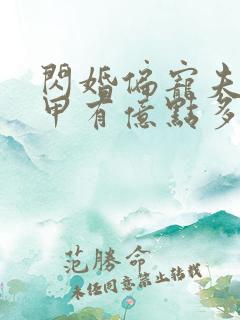 閃婚偏寵夫
甲有億點多
范勝命
未經同意禁止轉載